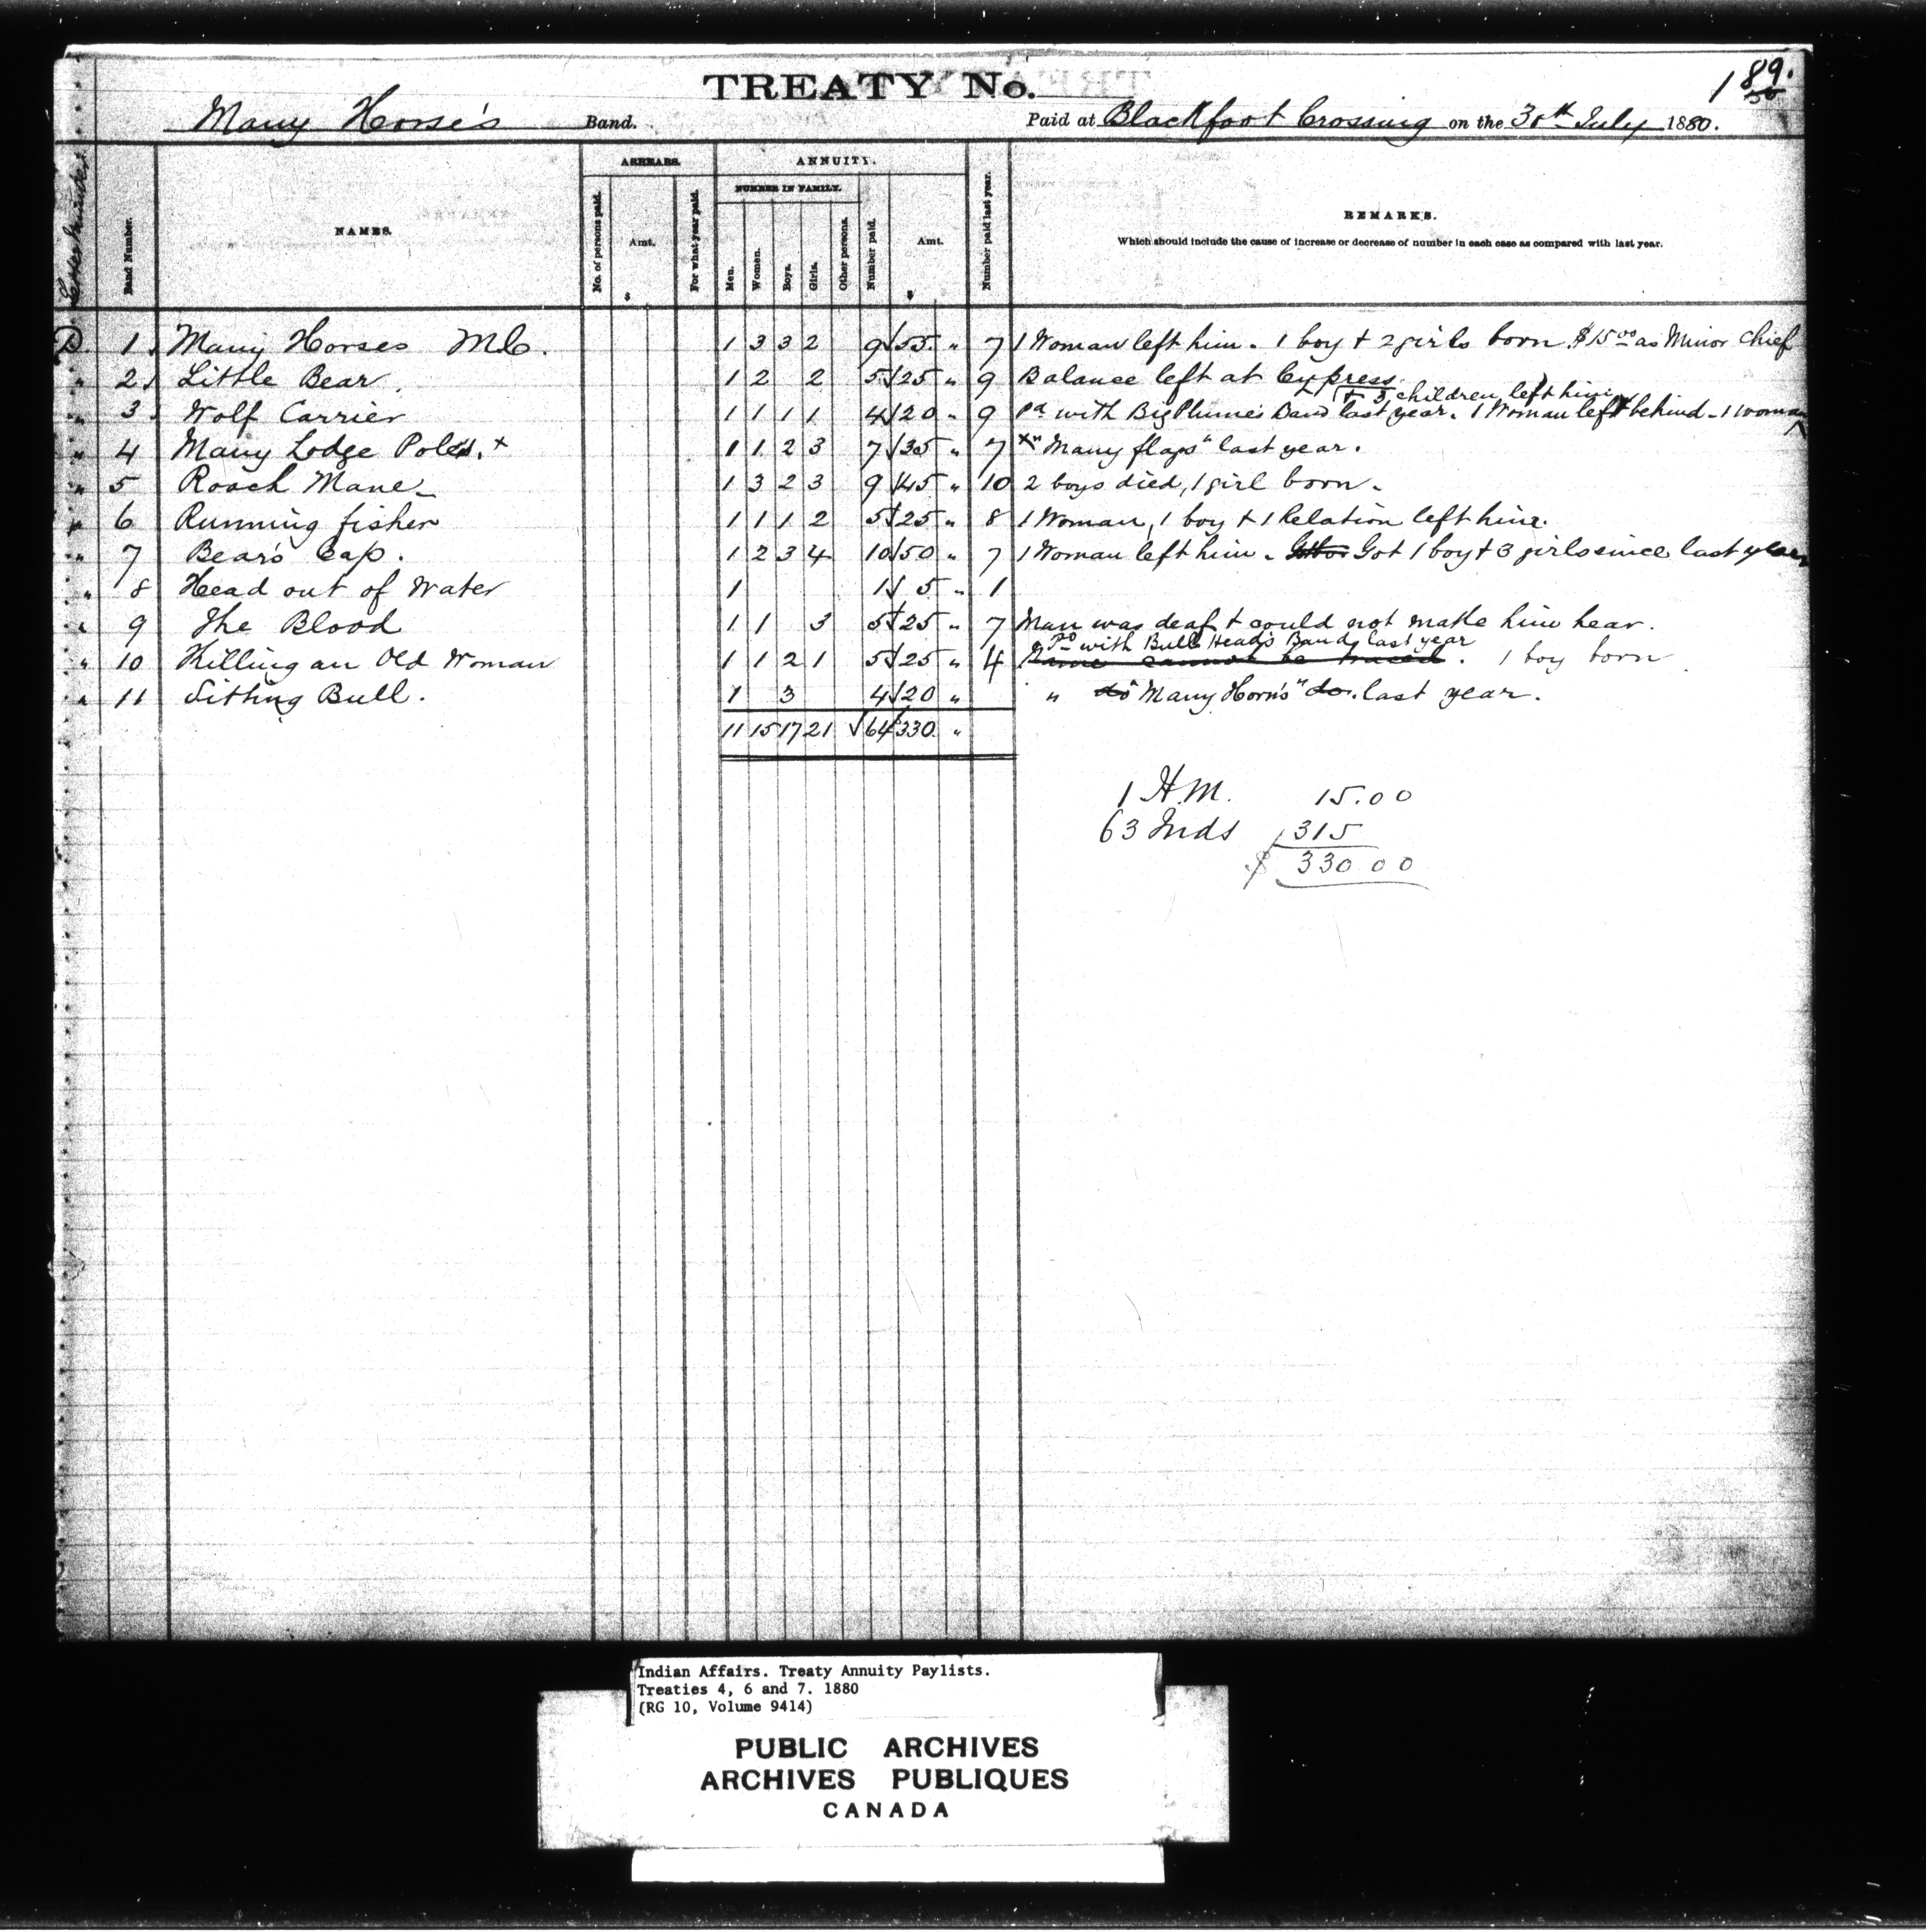 TREATY No.
189.
Many Horse's Band. Paid at Blackfoot Crossing on the 30th July 1880.
ARREARS. ANNUITY.
NUMBER IN FAMILY.
Band Number. NAMES. No. of persons paid. Amt. $ For what year paid. Men. Women. Boys. Girls. Other persons. Number paid. Amt. $ Number paid last year. REMARKS.
Which should include the cause of increase or decrease of number in each case as compared with last year.
D. 1. Many Horses M.C. 1 3 3 2 9 55. " 7 1 Woman left him. 1 boy + 2 girls born $15.00 as Minor Chief
" 2. Little Bear. 1 2 2 5 25 " 9 Balance left at Cypress.
+ 3 children left him
" 3. Wolf Carrier 1 1 1 1 4 20 " 9 Pd with Big Plume's Band last year. 1 Woman left behind - 1 woman
" 4 Many Lodge Poles. x 1 1 2 3 7 35 " 7 x "Many flaps" last year.
" 5 Roach Mane 1 3 2 3 9 45 " 10 2 boys died, 1 girl born.
" 6 Running fisher 1 1 1 2 5 25 " 8 1 Woman, 1 boy + 1 Relation left him.
" 7 Bear's Cap. 1 2 3 4 10 50 " 7 1 Woman left him. Got 1 boy + 3 girls since last year
" 8 Head out of Water 1 1 5 " 1
" 9 The Blood 1 1 3 5 25 " 7 Man was deaf + could not make him hear.
Pd with Bull Head's Band last year
" 10 Killing an Old Woman 1 1 2 1 5 25 " 4 Name cannot be traced. 1 boy born
" 11 Sitting Bull. 1 3 4 20 " " do "Many Horn's" do. last year.
11 15 17 21 64 330. "
1 H.M. 15.00
63 Inds 315
$ 330 00
Indian Affairs. Treaty Annuity Paylists.
Treaties 4, 6 and 7. 1880
(RG 10, Volume 9414)
PUBLIC ARCHIVES
ARCHIVES PUBLIQUES
CANADA